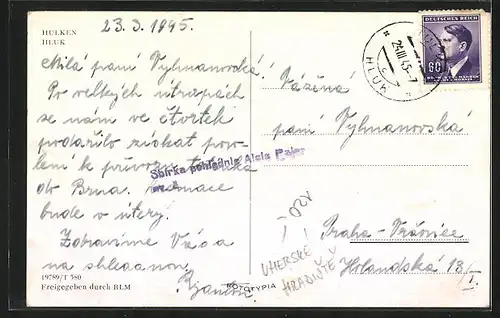 HULKEN
HLUK
23.3.1945.
Milá paní Vyhnanovská!
Po velkých útrapách
se nám ve čtvrtek
podařilo získat povo-
lení k převozu
do Brna.
bude v úterý.
Zdravíme Vás a
na shledanou.
19789/T 580
Freigegeben durch RLM
FOTOTYPIA
Sbírka pohlednic Alois Pajer
DEUTSCHES REICH
60
24.III.45-7
HLUK
Vážená
paní Vyhnanovská
Praha-Vršovice
Holandská 13/I.
UHERSKÉ
HRADIŠTĚ